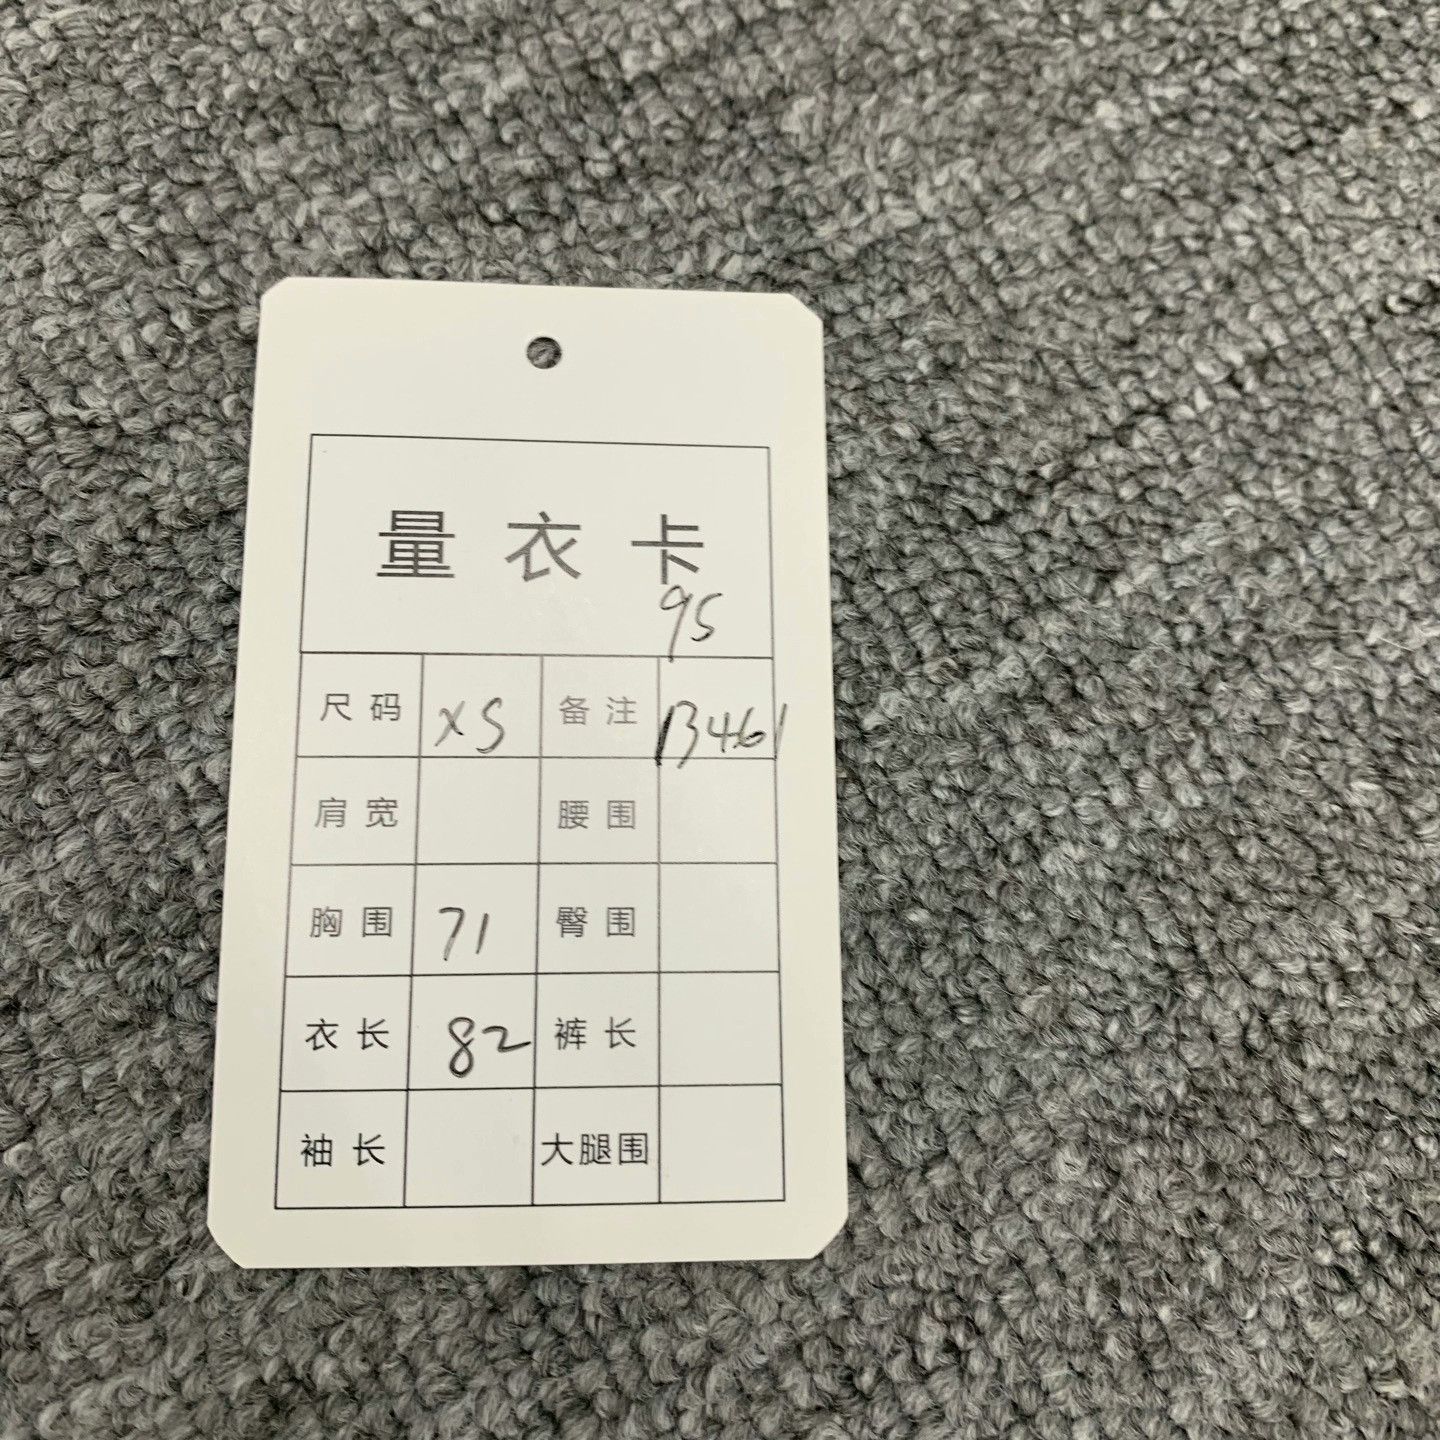 量衣卡
95
尺码 XS 备注 13461
肩宽 腰围
胸围 71 臀围
衣长 82 裤长
袖长 大腿围